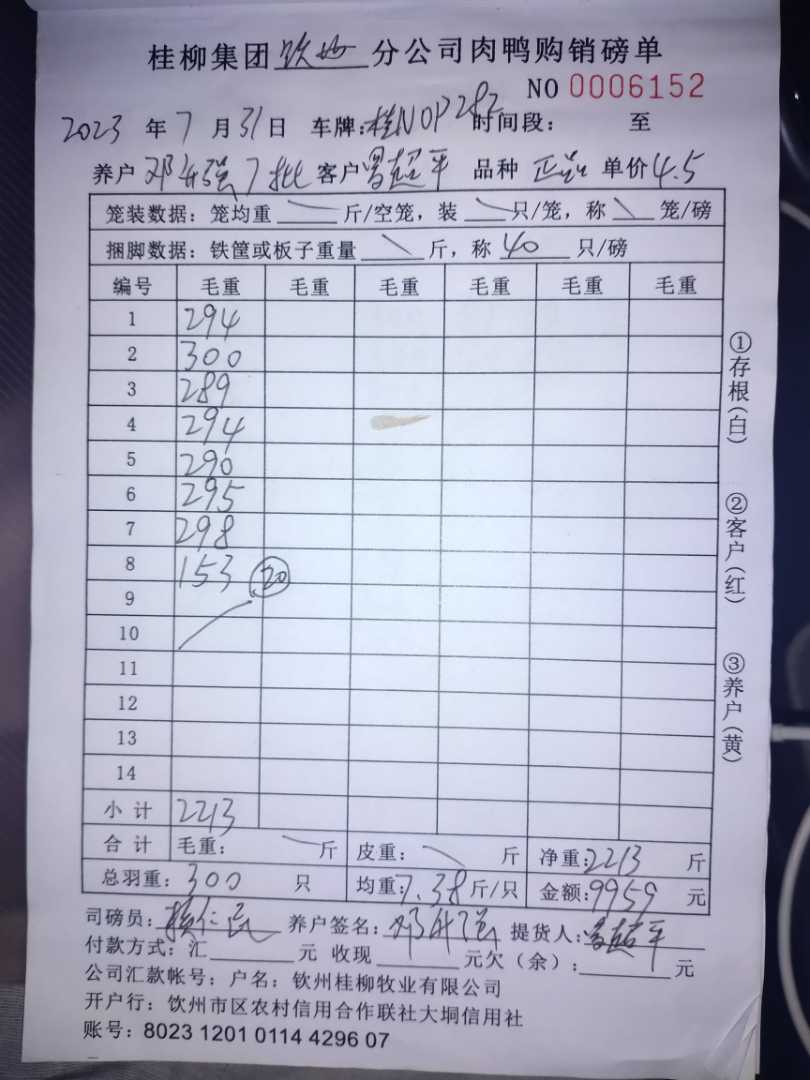 桂柳集团 钦州 分公司肉鸭购销磅单
NO 0006152
2023 年 7 月 31 日 车牌:桂N0P282 时间段: 至
养户 邓 强 7批 客户 超平 品种 单价 4.5
笼装数据:笼均重 斤/空笼,装 只/笼,称 笼/磅
捆脚数据:铁筐或板子重量 斤,称 40 只/磅
编号 毛重 毛重 毛重 毛重 毛重 毛重
1 294
2 300
3 289
4 294
5 290
6 295
7 298
8 153 20
9
10
11
12
13
14
小计 2213
合计 毛重: 斤 皮重: 斤 净重:2213 斤
总羽重:300 只 均重:7.38 斤/只 金额:9959 元
司磅员: 仁 养户签名:邓 强 提货人: 超平
付款方式:汇 元 收现 元欠(余): 元
公司汇款帐号:户名:钦州桂柳牧业有限公司
开户行:钦州市区农村信用合作联社大垌信用社
账号:8023 1201 0114 4296 07
①存根(白)
②客户(红)
③养户(黄)